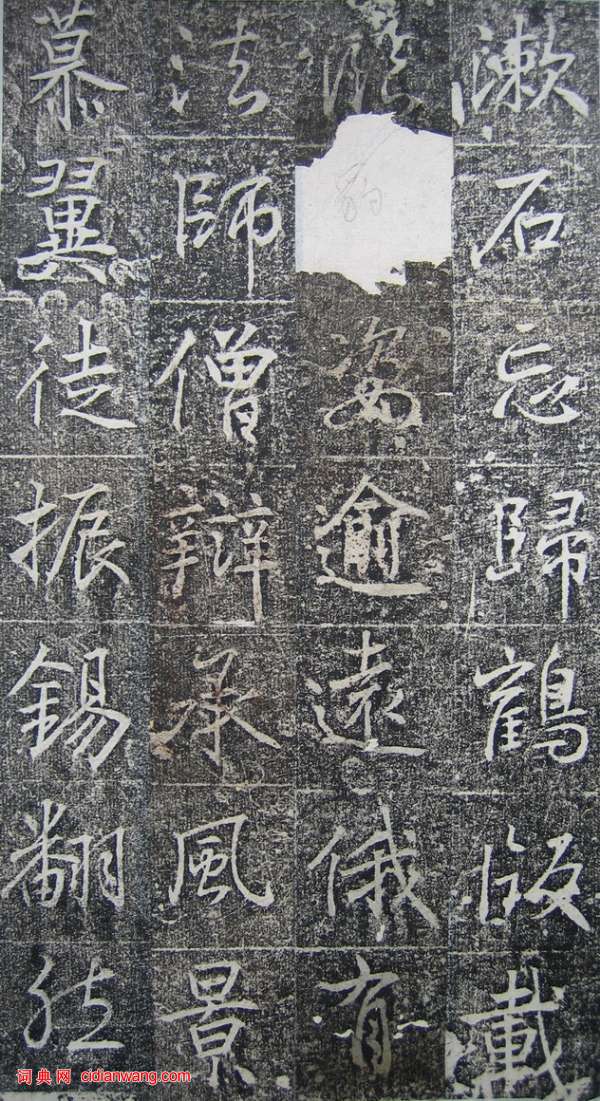 漱石忘歸鶴版載
臨豹姿逾遠俄有
法師僧辯承風景
慕翼徒振錫翻然
词典网 cidianwang.com